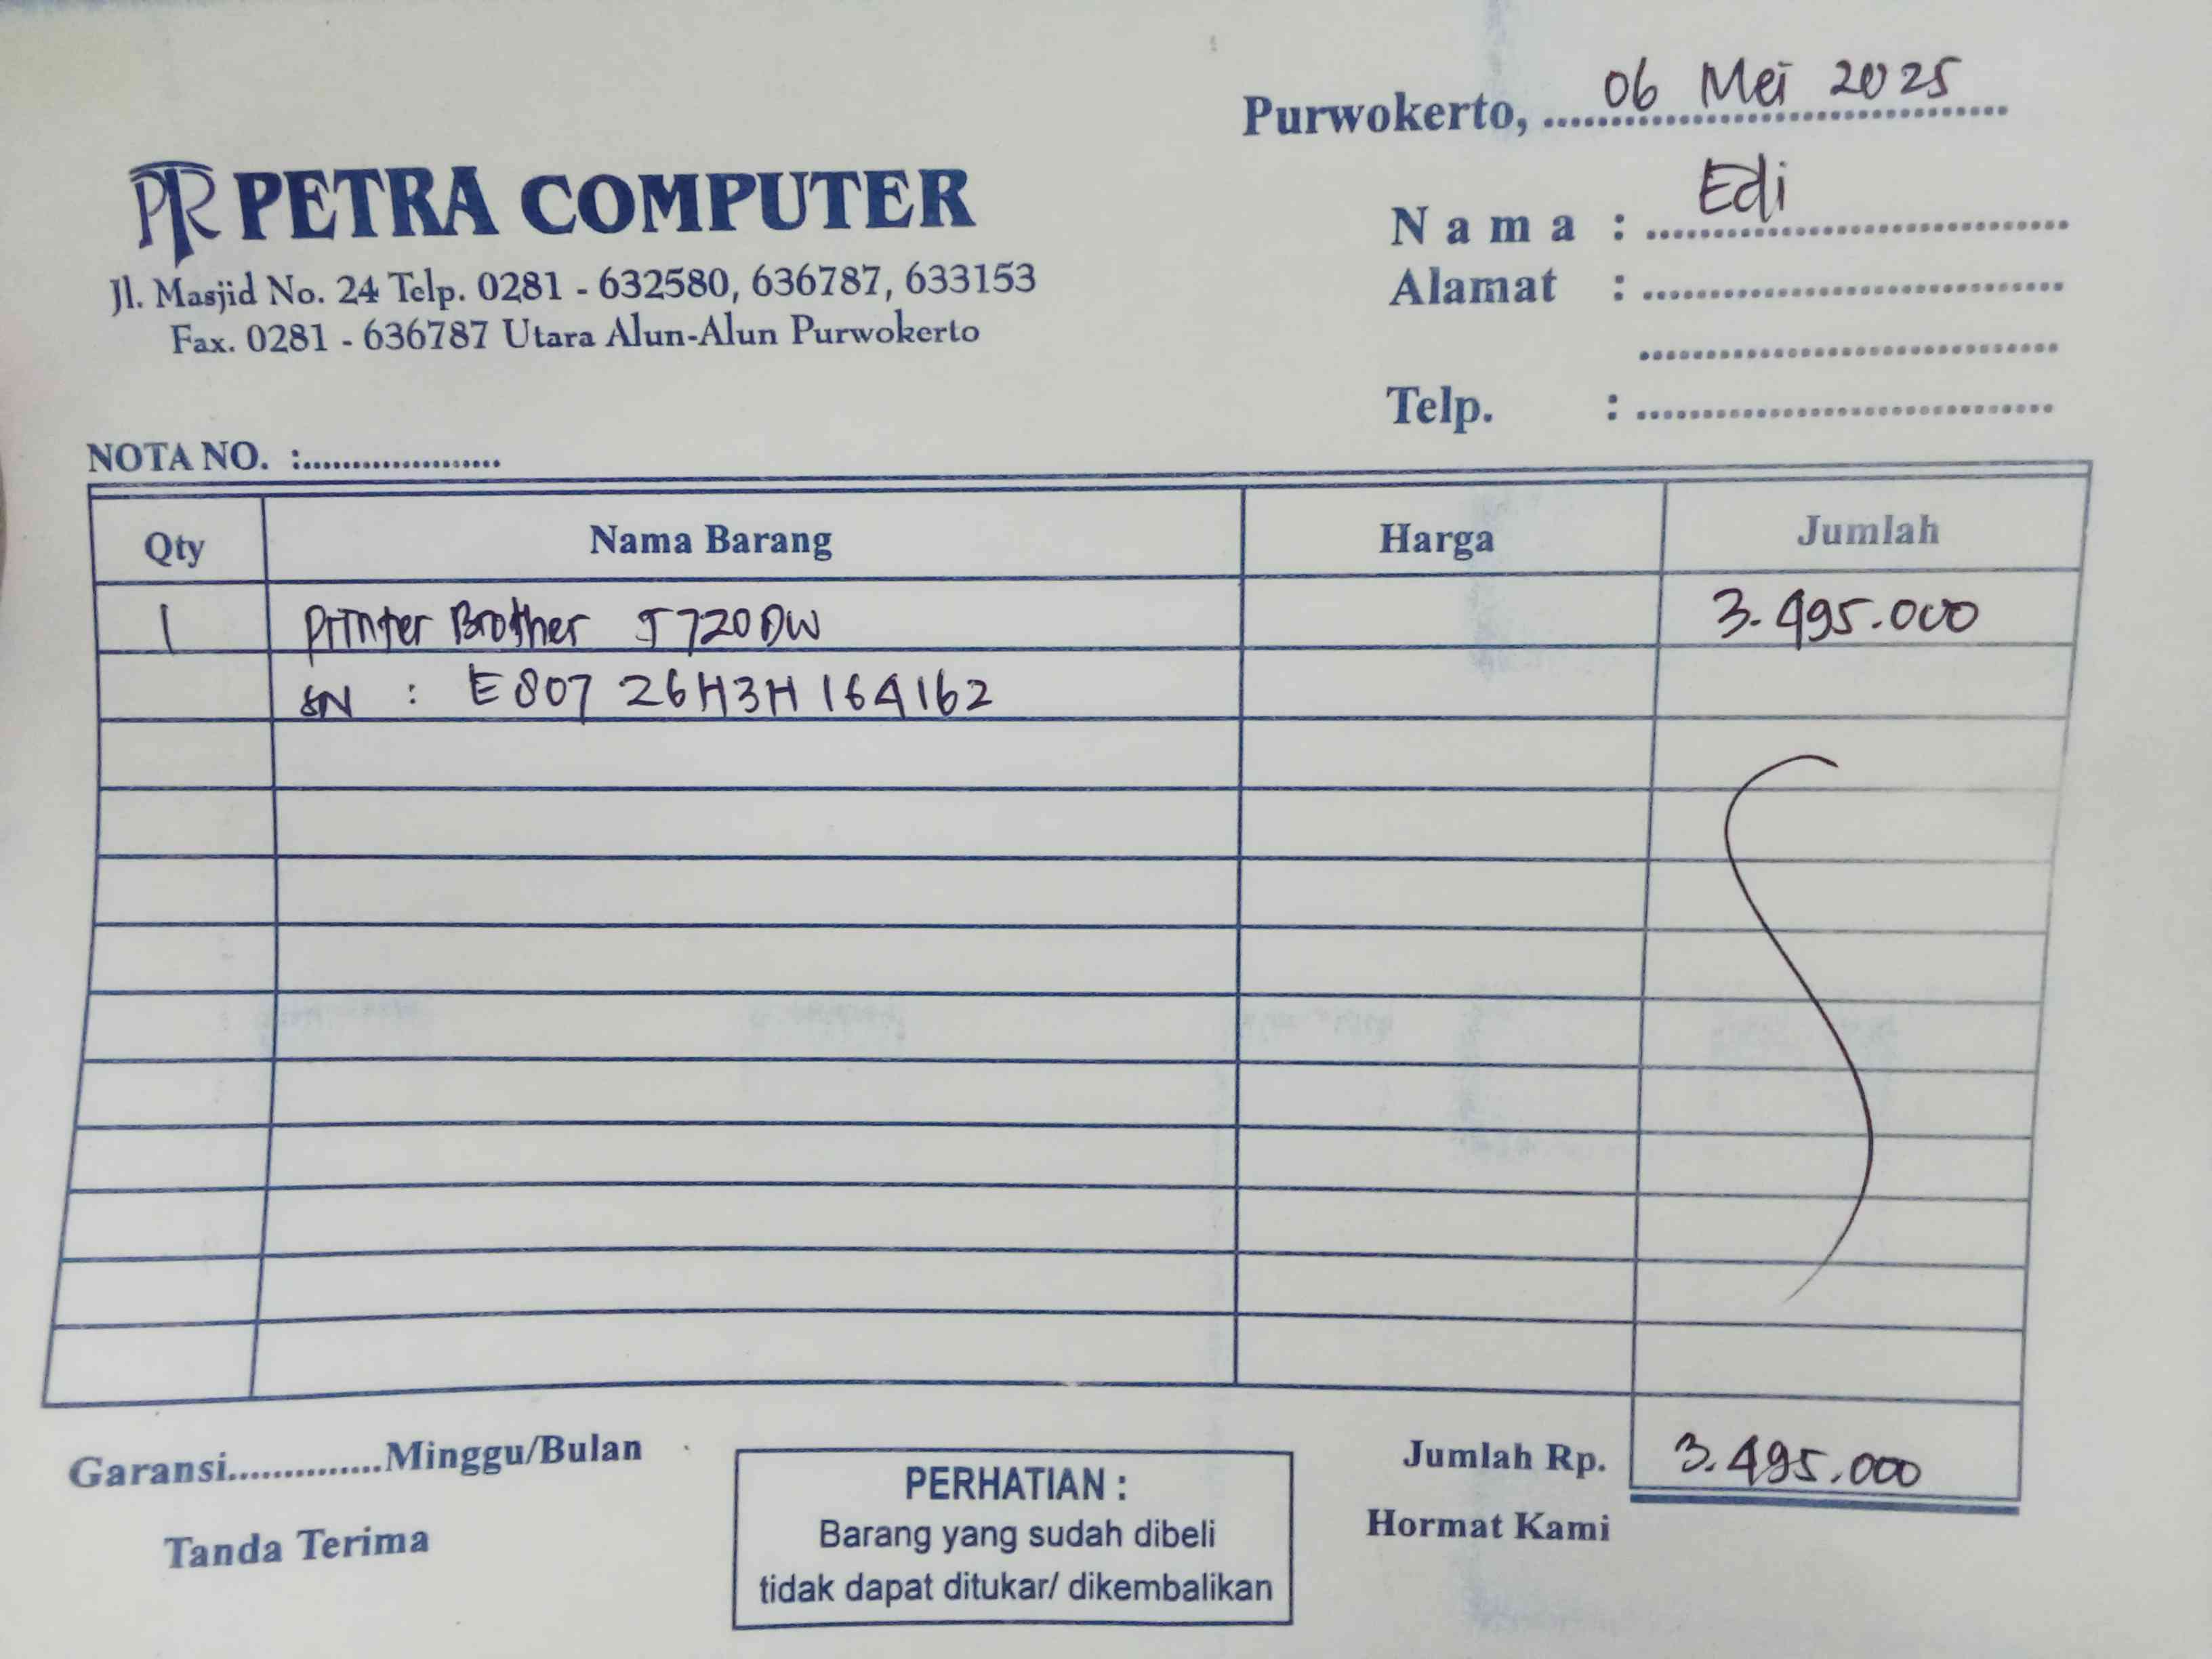 Purwokerto, 06 Mei 2025
PR PETRA COMPUTER
Jl. Masjid No. 24 Telp. 0281 - 632580, 636787, 633153
Fax. 0281 - 636787 Utara Alun-Alun Purwokerto
Nama : Edi
Alamat :
Telp. :
NOTA NO. :
Qty Nama Barang Harga Jumlah
1 Printer Brother J720DW 3.495.000
SN : E807 26H3H 164162
Garansi..............Minggu/Bulan
Jumlah Rp. 3.495.000
Tanda Terima
PERHATIAN :
Barang yang sudah dibeli
tidak dapat ditukar/ dikembalikan
Hormat Kami